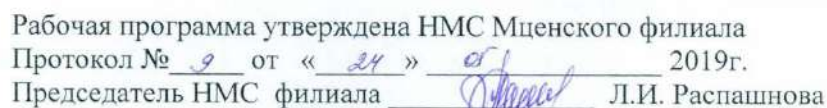 Рабочая программа утверждена НМС Мценского филиала
Протокол № 9 от « 24 » 2019г.
Председатель НМС филиала Л.И. Распашнова